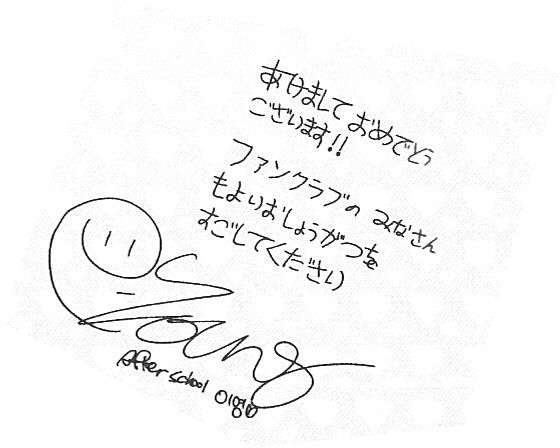 あけまして おめでとう
ございます!!
ファンクラブの みなさん
もよいおしょうがつを
すごしてください
After school